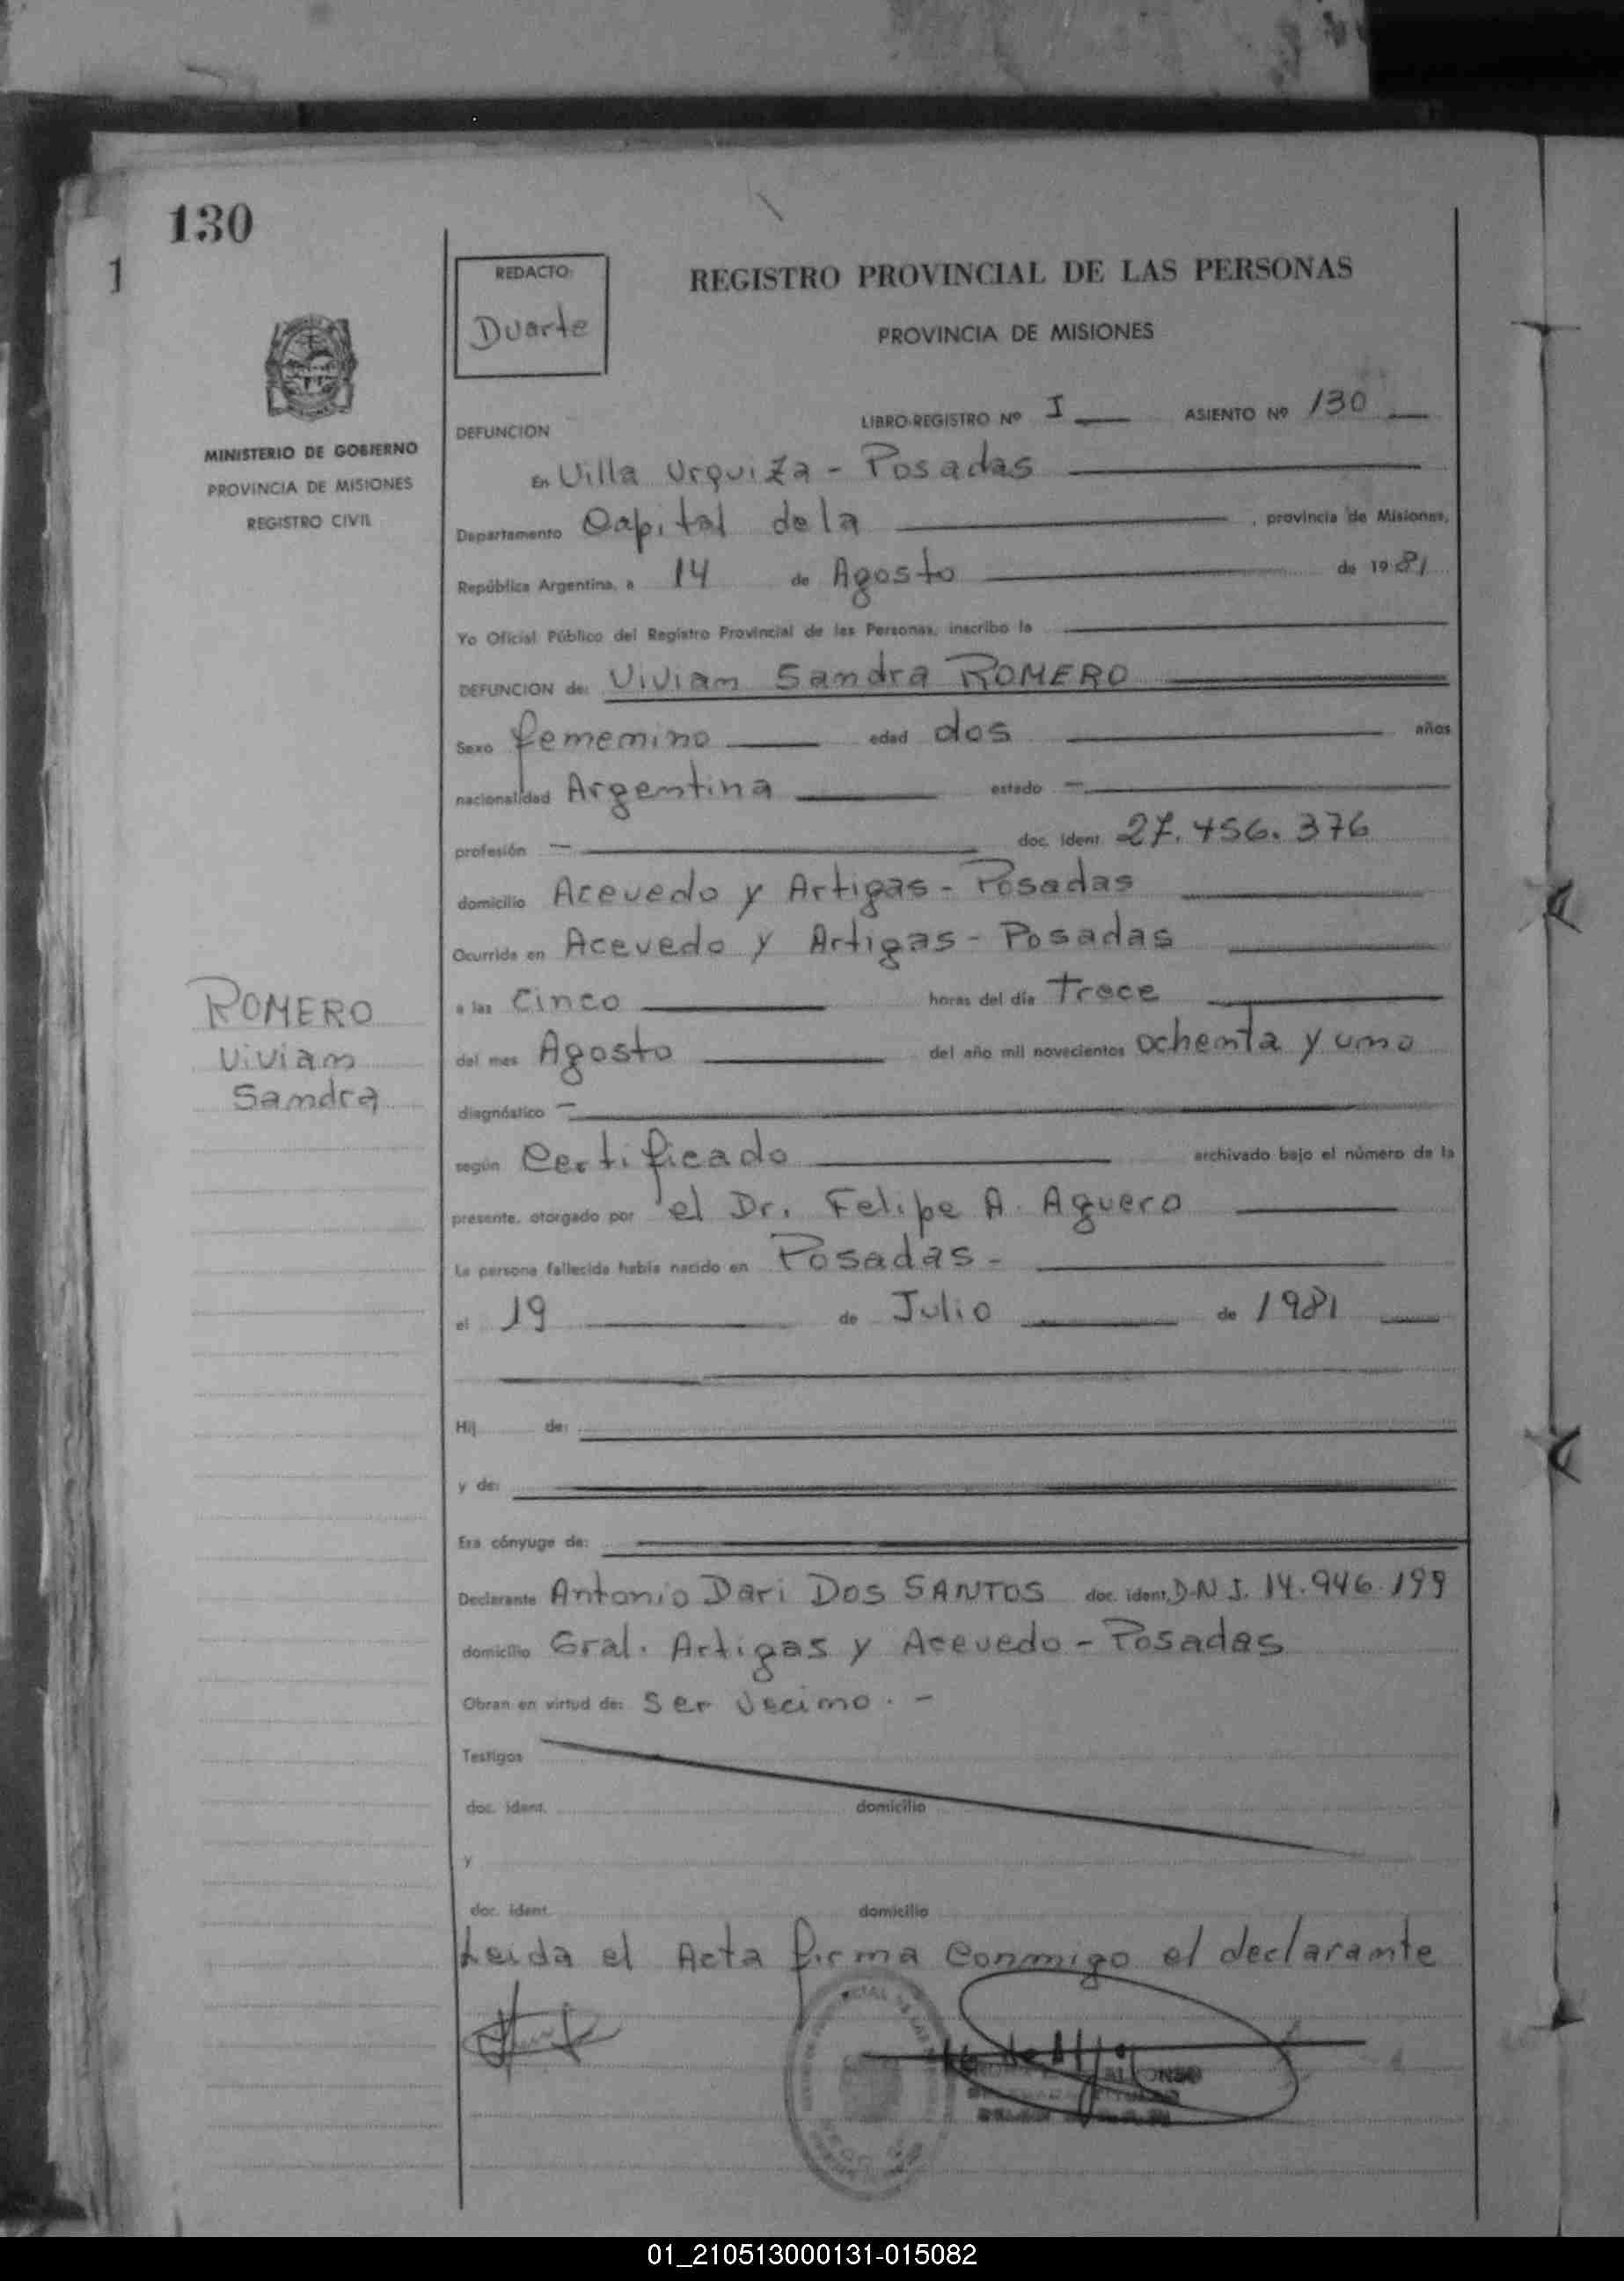 130
1
REDACTO:
Duarte
REGISTRO PROVINCIAL DE LAS PERSONAS
PROVINCIA DE MISIONES
MINISTERIO DE GOBIERNO
PROVINCIA DE MISIONES
REGISTRO CIVIL
DEFUNCION
LIBRO-REGISTRO Nº I ASIENTO Nº 130
En Villa Urquiza - Posadas
Departamento Capital de la , provincia de Misiones,
República Argentina, a 14 de Agosto de 1981
Yo Oficial Público del Registro Provincial de las Personas, inscribo la
DEFUNCION de: Vivian Sandra ROMERO
Sexo femenino edad dos años
nacionalidad Argentina estado -
profesión - doc. ident. 27.456.376
domicilio Acevedo y Artigas - Posadas
Ocurrida en Acevedo y Artigas - Posadas
a las Cinco horas del día Trece
del mes Agosto del año mil novecientos ochenta y uno
diagnóstico -
según Certificado archivado bajo el número de la
presente, otorgado por el Dr. Felipe A. Aguero
La persona fallecida había nacido en Posadas -
el 19 de Julio de 1981
Hij de:
y de:
Era cónyuge de:
Declarante Antonio Dari DOS SANTOS doc. ident. D.N.I. 14.946.199
domicilio Gral. Artigas y Acevedo - Posadas
Obran en virtud de: Ser vecino. -
Testigos
doc. ident. domicilio
y
doc. ident. domicilio
Leida el Acta firma conmigo el declarante
ROMERO
Vivian
Sandra
01_210513000131-015082